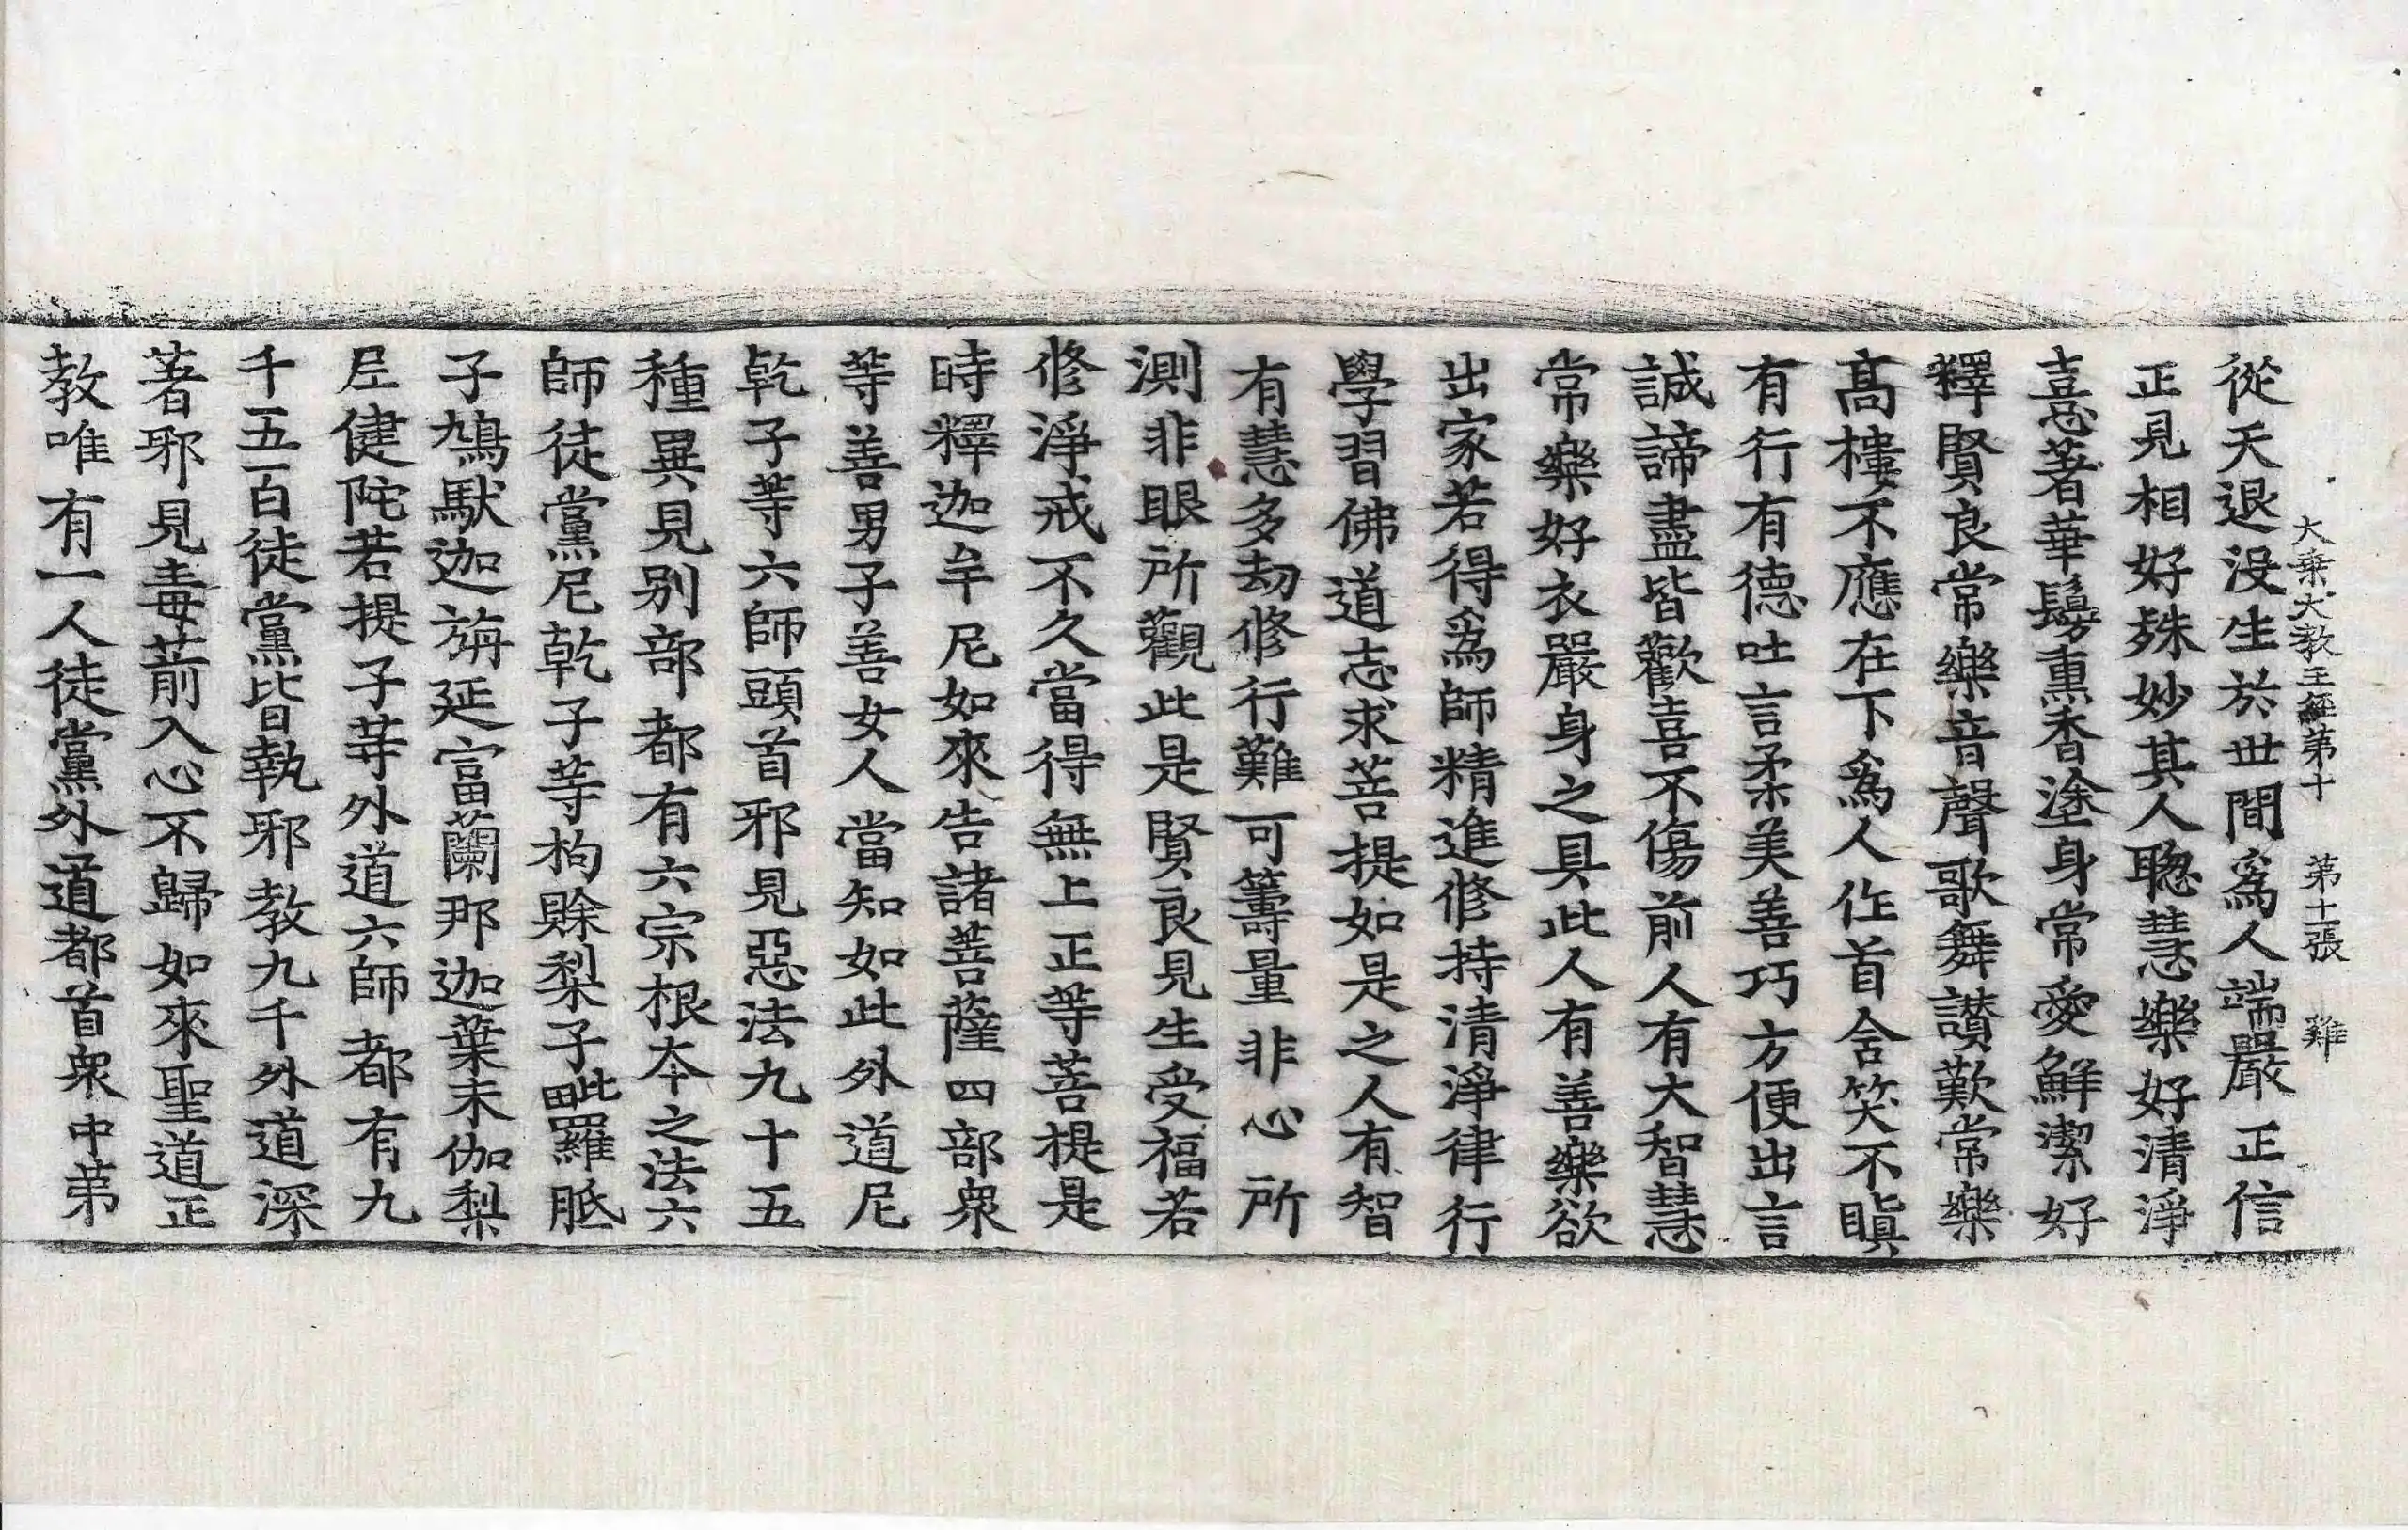 大乗大教王經第十 第十一張 難
從天退没生於世間爲人端嚴正信
正見相好殊妙其人聦慧樂好清淨
喜著華鬘熏香塗身常愛鮮潔好
釋賢良常樂音聲歌舞讃歎常樂
髙樓不應在下爲人作首含笑不瞋
有行有德吐言柔美善巧方便出言
誠諦盡皆歡喜不傷前人有大智慧
常樂好衣嚴身之具此人有善樂欲
出家若得爲師精進修持清淨律行
學習佛道志求菩提如是之人有智
有慧多劫修行難可籌量非心所
測非眼所觀此是賢良見生受福若
修淨戒不久當得無上正等菩提是
時釋迦牟尼如來告諸菩薩四部衆
等善男子善女人當知如此外道尼
乾子等六師頭首邪見惡法九十五
種異見别部都有六宗根本之法六
師徒黨尼乾子等枸賒梨子毗羅胝
子鳩馱迦旃延富蘭那迦葉未伽梨
尼健陀若提子等外道六師都有九
千五百徒黨皆執邪教九千外道深
著邪見毒箭入心不歸如來聖道正
教唯有一人徒黨外道都首衆中第